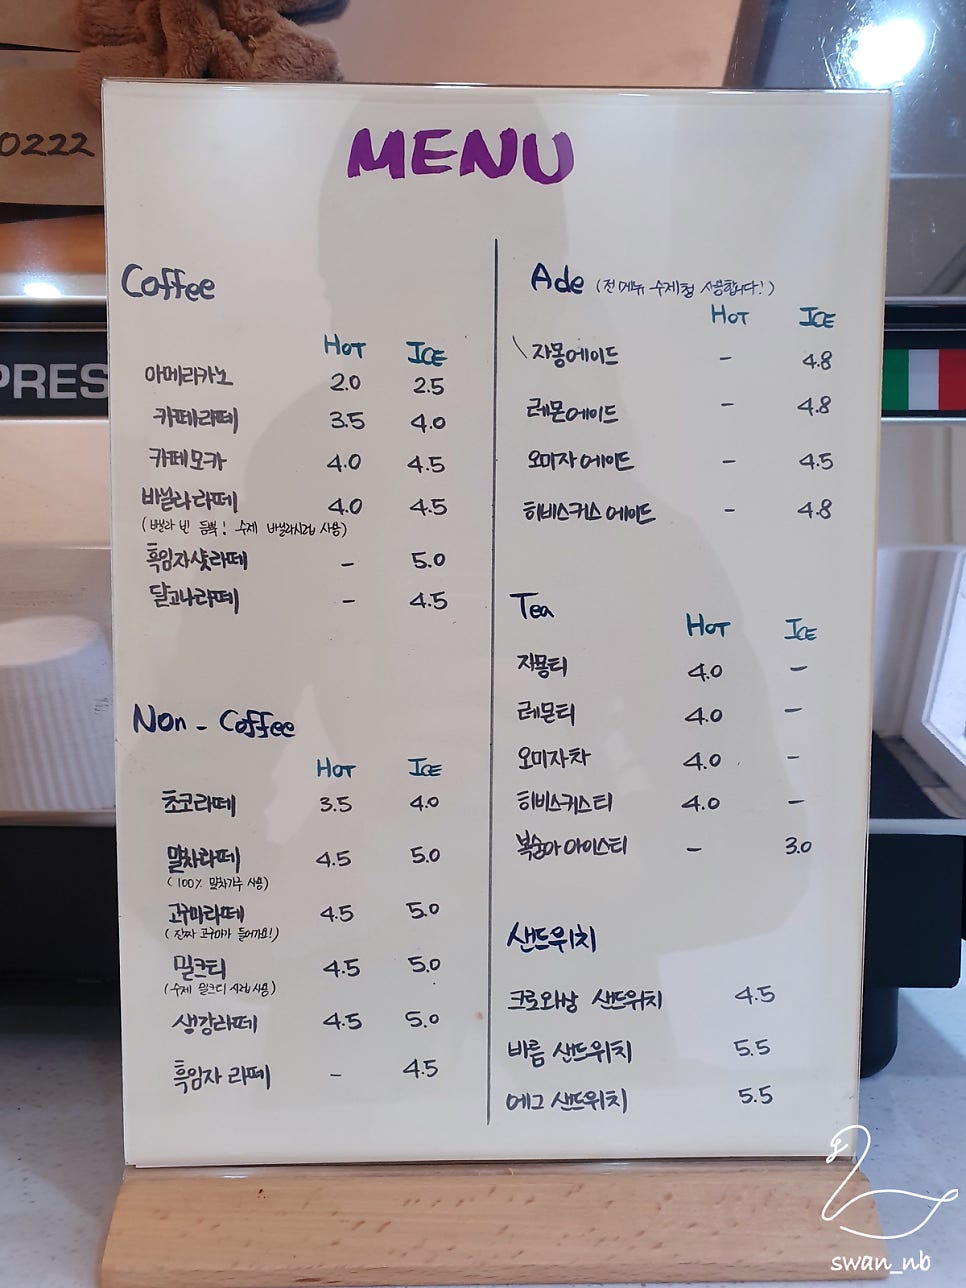 0222
PRES
MENU
Coffee
HOT ICE
아메리카노 2.0 2.5
카페라떼 3.5 4.0
카페모카 4.0 4.5
바닐라라떼 4.0 4.5
(바닐라 빈 듬뿍! 수제 바닐라시럽 사용)
흑임자샷라떼 - 5.0
달고나라떼 - 4.5
Non - Coffee
HOT ICE
초코라떼 3.5 4.0
말차라떼 4.5 5.0
(100% 말차가루 사용)
고구마라떼 4.5 5.0
(진짜 고구마가 들어가요!)
밀크티 4.5 5.0
(수제 밀크티 시럽 사용)
생강라떼 4.5 5.0
흑임자 라떼 - 4.5
Ade (전메뉴 수제청 사용합니다!)
HOT ICE
자몽에이드 - 4.8
레몬에이드 - 4.8
오미자에이드 - 4.5
히비스커스에이드 - 4.8
Tea
HOT ICE
자몽티 4.0 -
레몬티 4.0 -
오미자차 4.0 -
히비스커스티 4.0 -
복숭아아이스티 - 3.0
샌드위치
크로와상 샌드위치 4.5
바름 샌드위치 5.5
에그 샌드위치 5.5
swan_nb